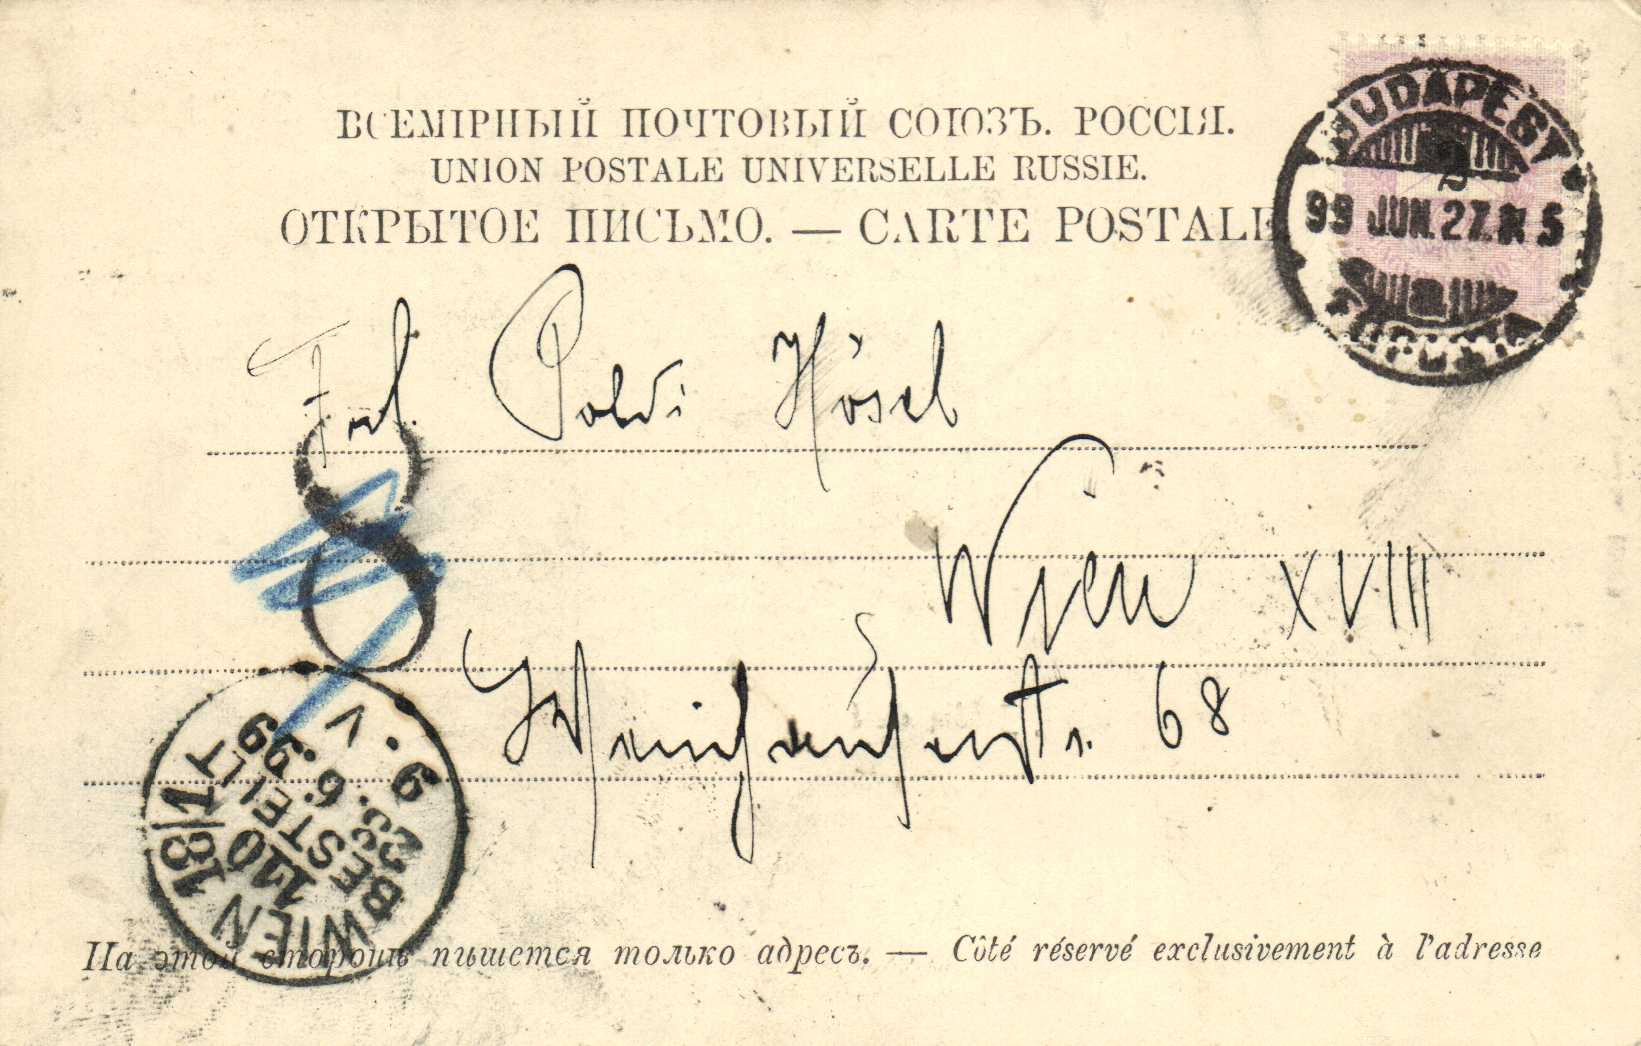 ВСЕМІРНЫЙ ПОЧТОВЫЙ СОЮЗЪ. РОССІЯ.
UNION POSTALE UNIVERSELLE RUSSIE.
ОТКРЫТОЕ ПИСЬМО. — CARTE POSTALE
BUDAPEST
2
99 JUN. 27. 5
Frl. Poldi Hösel
8
Wien XVIII
68
WIEN 18/1
110
BESTELLT
6. 99
9. V
На этой сторонѣ пишется только адресъ. — Côté réservé exclusivement à l'adresse